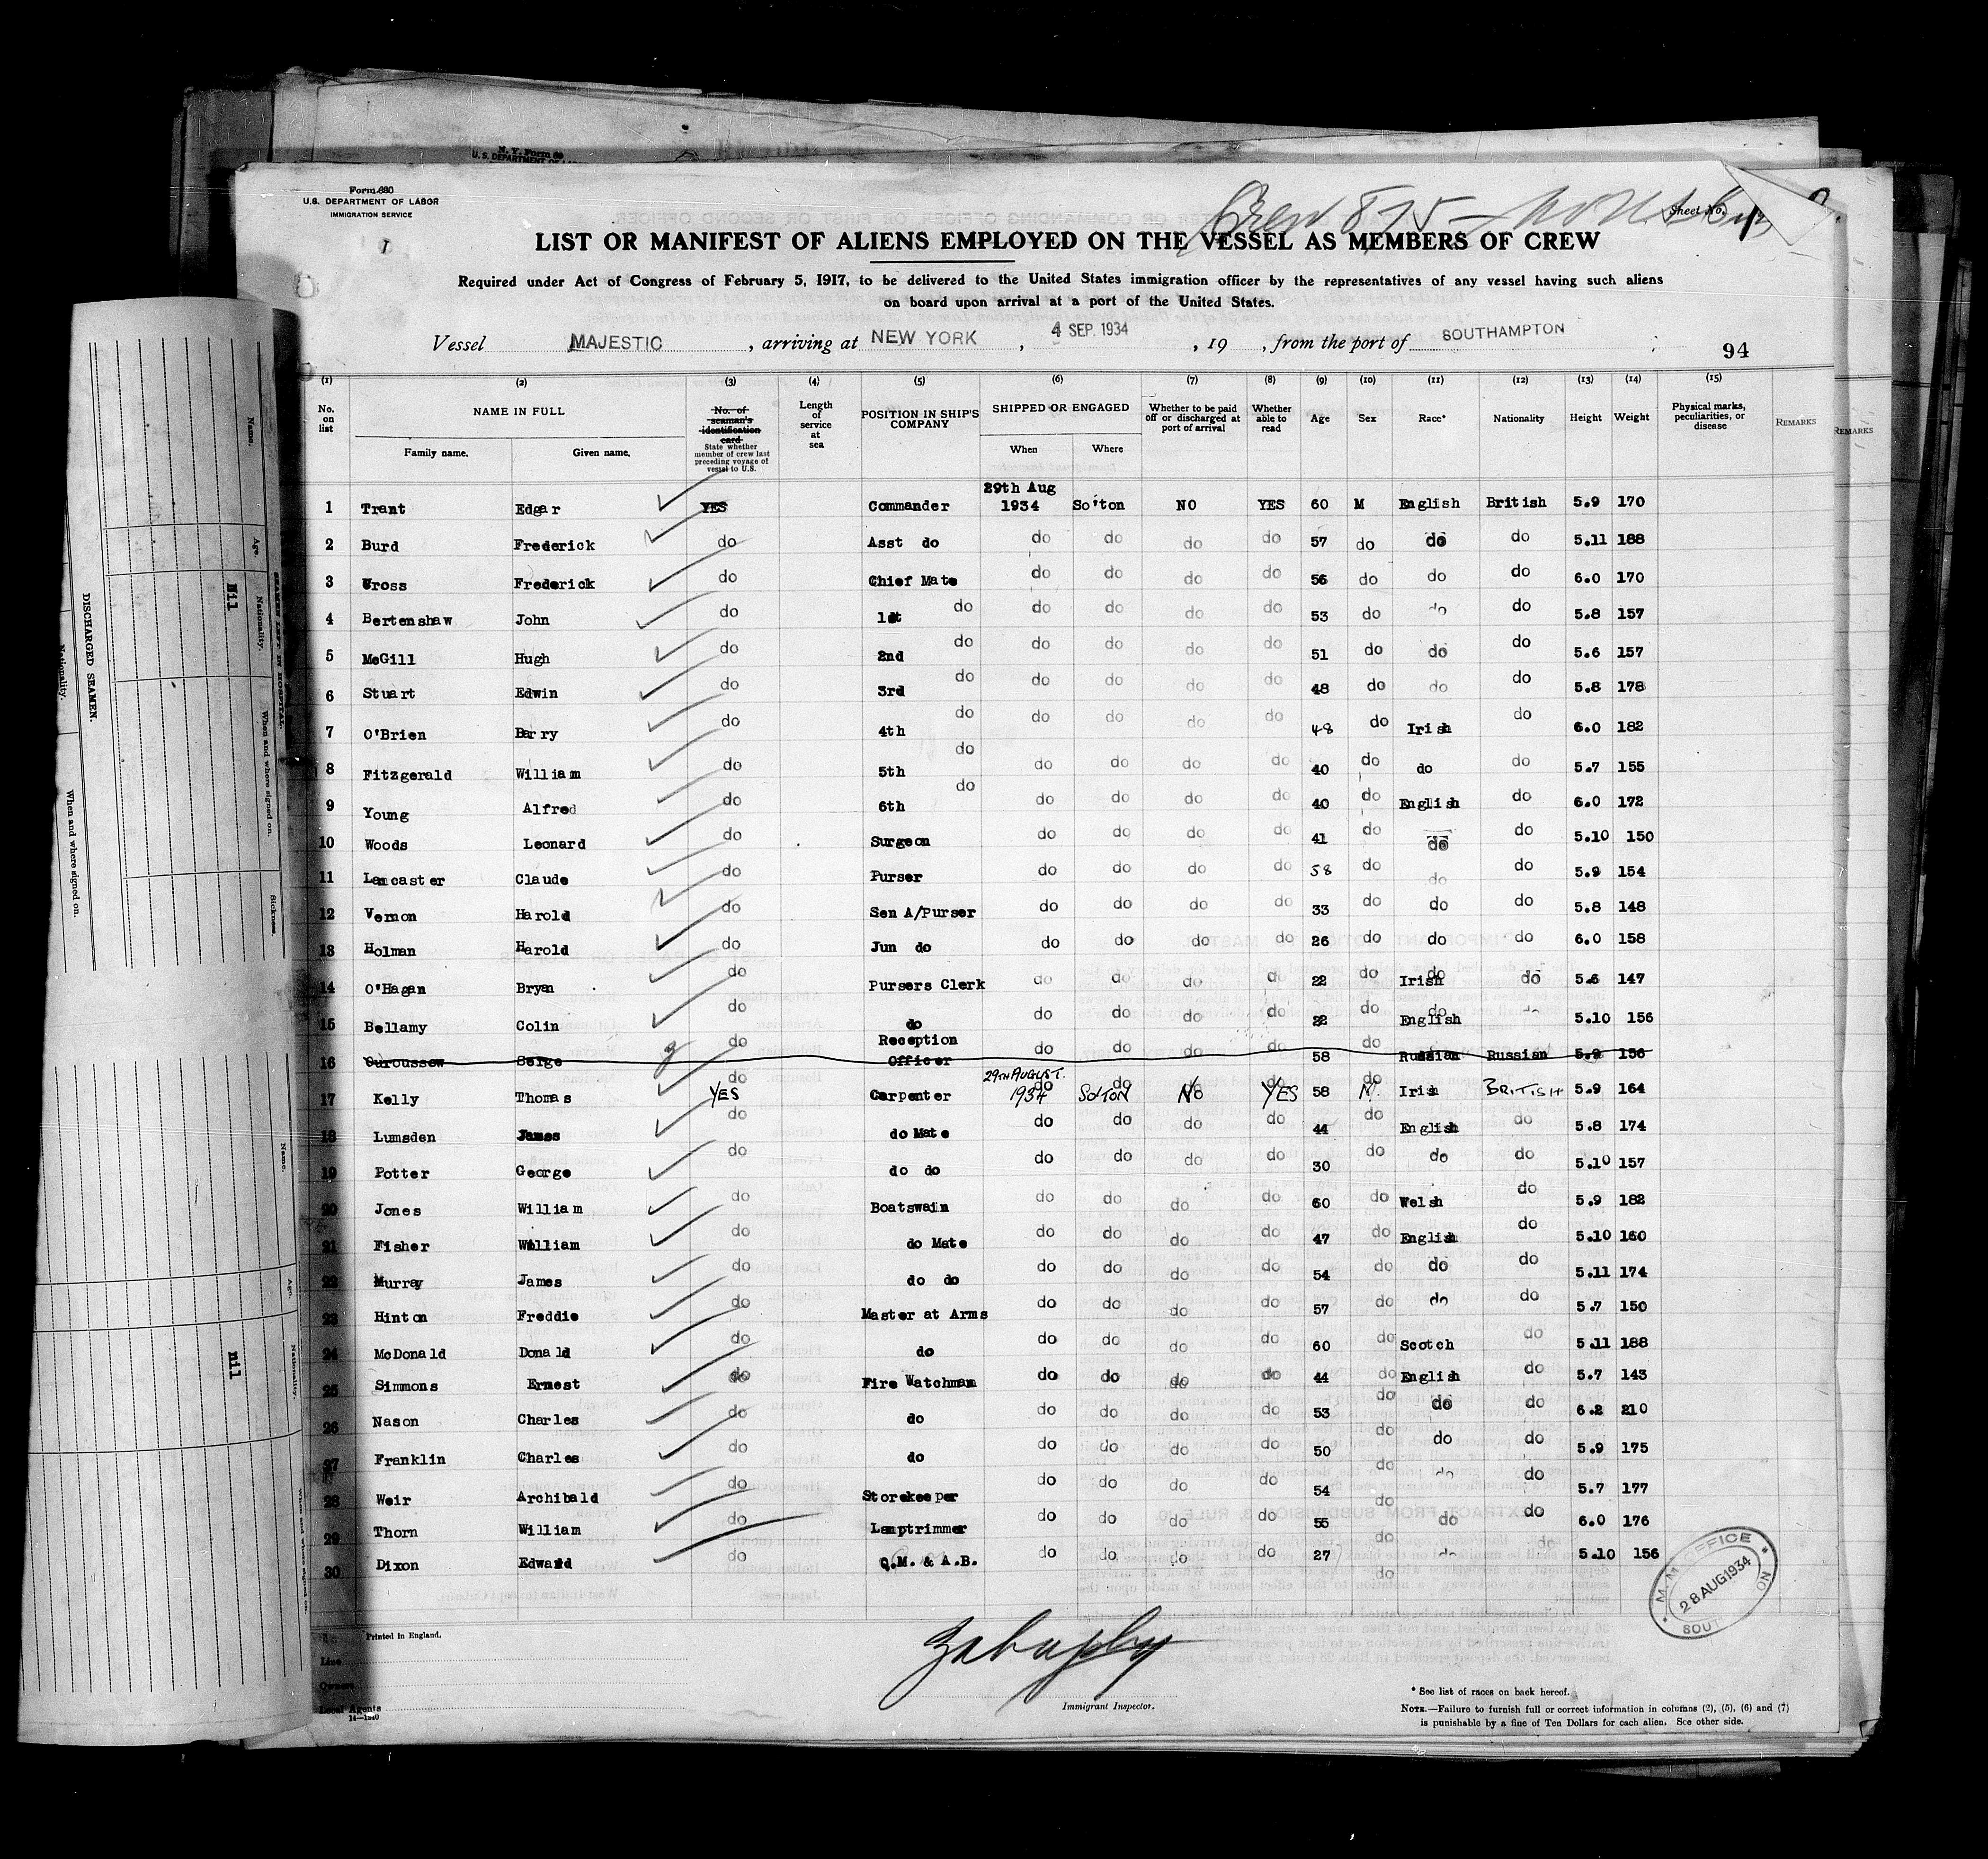 N. Y. Form 89
U. S. DEPARTMENT OF
Form 680
U.S. DEPARTMENT OF LABOR
IMMIGRATION SERVICE
Crew 875
Sheet No. 1
LIST OR MANIFEST OF ALIENS EMPLOYED ON THE VESSEL AS MEMBERS OF CREW
Required under Act of Congress of February 5, 1917, to be delivered to the United States immigration officer by the representatives of any vessel having such aliens
on board upon arrival at a port of the United States.
Vessel MAJESTIC, arriving at NEW YORK, 4 SEP. 1934, 19 , from the port of SOUTHAMPTON 94
(1) (2) (3) (4) (5) (6) (7) (8) (9) (10) (11) (12) (13) (14) (15)
No. on list NAME IN FULL Family name. Given name. No. of seaman's identification card State whether member of crew last preceding voyage of vessel to U.S. Length of service at sea POSITION IN SHIP'S COMPANY SHIPPED OR ENGAGED When Where Whether to be paid off or discharged at port of arrival Whether able to read Age Sex Race* Nationality Height Weight Physical marks, peculiarities, or disease REMARKS REMARKS
1 Trant Edgar YES Commander 29th Aug 1934 So'ton NO YES 60 M English British 5.9 170
2 Burd Frederick do Asst do do do do do 57 do do do 5.11 188
3 Cross Frederick do Chief Mate do do do do 56 do do do 6.0 170
4 Bertenshaw John do 1st do do do do do 53 do do do 5.8 157
5 McGill Hugh do 2nd do do do do do 51 do do do 5.6 157
6 Stuart Edwin do 3rd do do do do do 48 do do do 5.8 178
7 O'Brien Barry do 4th do do do do do 48 do Irish do 6.0 182
8 Fitzgerald William do 5th do do do do do 40 do do do 5.7 155
9 Young Alfred do 6th do do do do do 40 do English do 6.0 172
10 Woods Leonard do Surgeon do do do do 41 do do do 5.10 150
11 Lancaster Claude do Purser do do do do 58 do do do 5.9 154
12 Vernon Harold do Sen A/Purser do do do do 33 do do do 5.8 148
13 Holman Harold do Jun do do do do do 26 do do do 6.0 158
14 O'Hagan Bryan do Pursers Clerk do do do do 22 do Irish do 5.6 147
15 Bellamy Colin do do do do do do 22 do English do 5.10 156
16 Ouroussow Serge do Reception Officer do do do do 58 do Russian Russian 5.9 156
17 Kelly Thomas YES Carpenter 29TH AUGUST. 1934 SO'TON NO YES 58 M. Irish BRITISH 5.9 164
18 Lumsden James do do Mate do do do do 44 do English do 5.8 174
19 Potter George do do do do do do do 30 do do do 5.10 157
20 Jones William do Boatswain do do do do 60 do Welsh do 5.9 182
21 Fisher William do do Mate do do do do 47 do English do 5.10 160
22 Murray James do do do do do do do 54 do do do 5.11 174
23 Hinton Freddie do Master at Arms do do do do 57 do do do 5.7 150
24 McDonald Donald do do do do do do 60 do Scotch do 5.11 188
25 Simmons Ernest do Fire Watchman do do do do 44 do English do 5.7 143
26 Nason Charles do do do do do do 53 do do do 6.2 210
27 Franklin Charles do do do do do do 50 do do do 5.9 175
28 Weir Archibald do Storekeeper do do do do 54 do do do 5.7 177
29 Thorn William do Lamptrimmer do do do do 55 do do do 6.0 176
30 Dixon Edward do Q.M. & A.B. do do do do 27 do do do 5.10 156
M.M. OFFICE
28 AUG 1934
SOUT
Printed in England.
Line
Owners
Local Agents
14—1240
Immigrant Inspector.
* See list of races on back hereof.
NOTE.—Failure to furnish full or correct information in columns (2), (5), (6) and (7)
is punishable by a fine of Ten Dollars for each alien. See other side.
SEAMEN LEFT IN HOSPITAL.
Name. Age. Nationality. When and where signed on. Sickness.
Nil
DISCHARGED SEAMEN.
Nationality. When and where signed on.
Name. Age. Nationality. When and where signed on.
nil